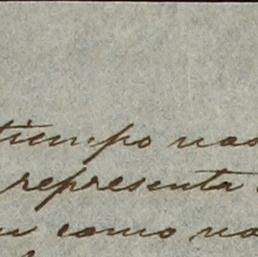 tiempo nos
representa
como no